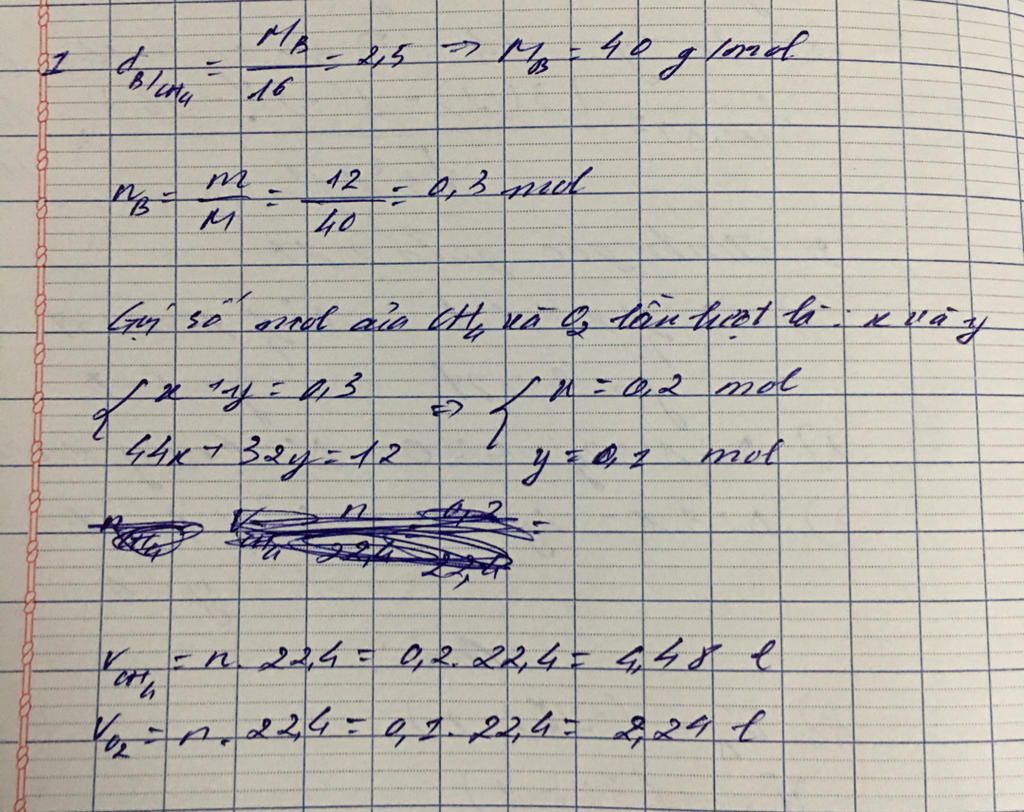 1 d_{B/CH₄} = M_B / 16 = 2,5 => M_B = 40 g/mol
n_B = m / M = 12 / 40 = 0,3 mol
Gọi số mol của CH₄ và O₂ lần lượt là : x và y
{ x + y = 0,3 => { x = 0,2 mol
44x + 32y = 12 y = 0,1 mol
V_{CH₄} = n . 22,4 = 0,2 . 22,4 = 4,48 l
V_{O₂} = n . 22,4 = 0,1 . 22,4 = 2,24 l